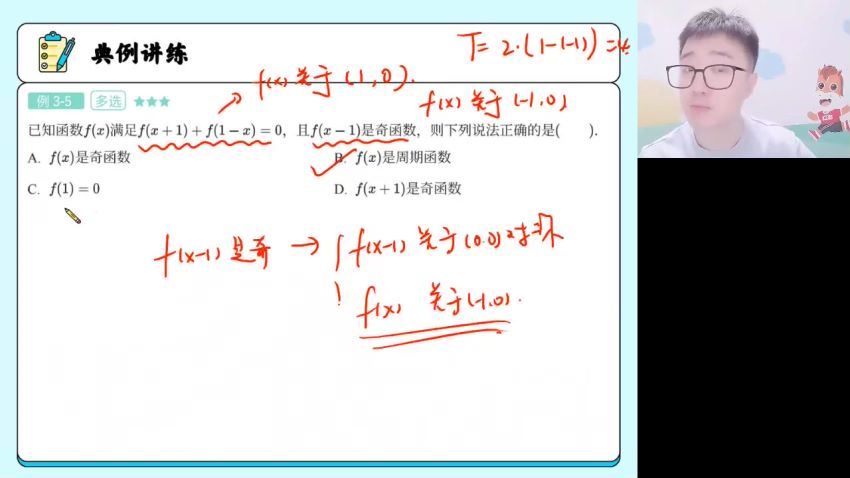 典例讲练
T=2·(1-(-1))=4
f(x)关于(1,0).
f(x)关于(-1,0)
例 3-5 多选 ★★★
已知函数f(x)满足f(x+1)+f(1-x)=0，且f(x-1)是奇函数，则下列说法正确的是(　　).
A. f(x)是奇函数 B. f(x)是周期函数
C. f(1)=0 D. f(x+1)是奇函数
f(x-1)是奇 → f(x-1)关于(0.0)对称
f(x) 关于(-1,0).